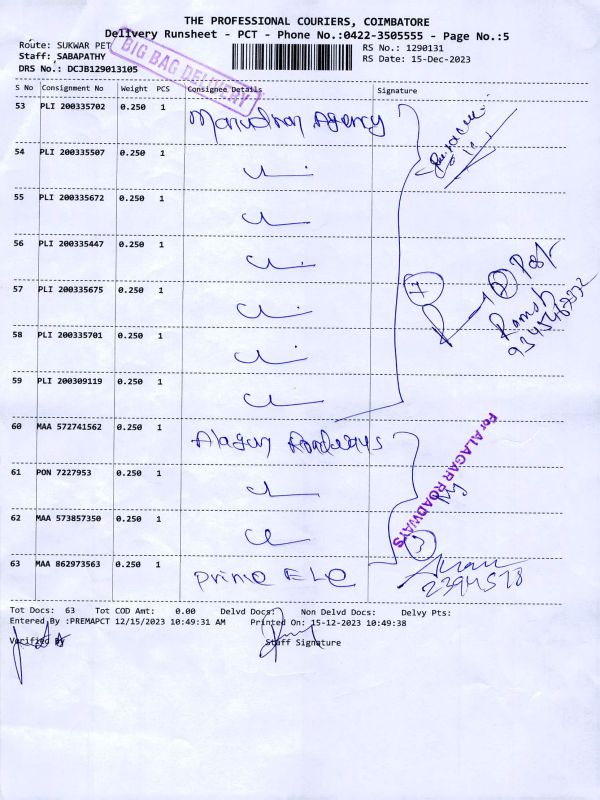 THE PROFESSIONAL COURIERS, COIMBATORE
Delivery Runsheet - PCT - Phone No.:0422-3505555 - Page No.:5
Route: SUKWAR PET
RS No.: 1290131
Staff: SABAPATHY
RS Date: 15-Dec-2023
DRS No.: DCJB129013105
BIG BAG DELIVERY
S No Consignment No Weight PCS Consignee Details Signature
53 PLI 200335702 0.250 1 Agency
54 PLI 200335507 0.250 1
55 PLI 200335672 0.250 1
56 PLI 200335447 0.250 1
57 PLI 200335675 0.250 1
7
58 PLI 200335701 0.250 1
59 PLI 200309119 0.250 1
60 MAA 572741562 0.250 1 Alagar Roadways
For ALAGAR ROADWAYS
61 PON 7227953 0.250 1
62 MAA 573857350 0.250 1
3
63 MAA 862973563 0.250 1 Prime ELe
Tot Docs: 63 Tot COD Amt: 0.00 Delvd Docs: Non Delvd Docs: Delvy Pts:
Entered By :PREMAPCT 12/15/2023 10:49:31 AM Printed On: 15-12-2023 10:49:38
Verified By
Staff Signature